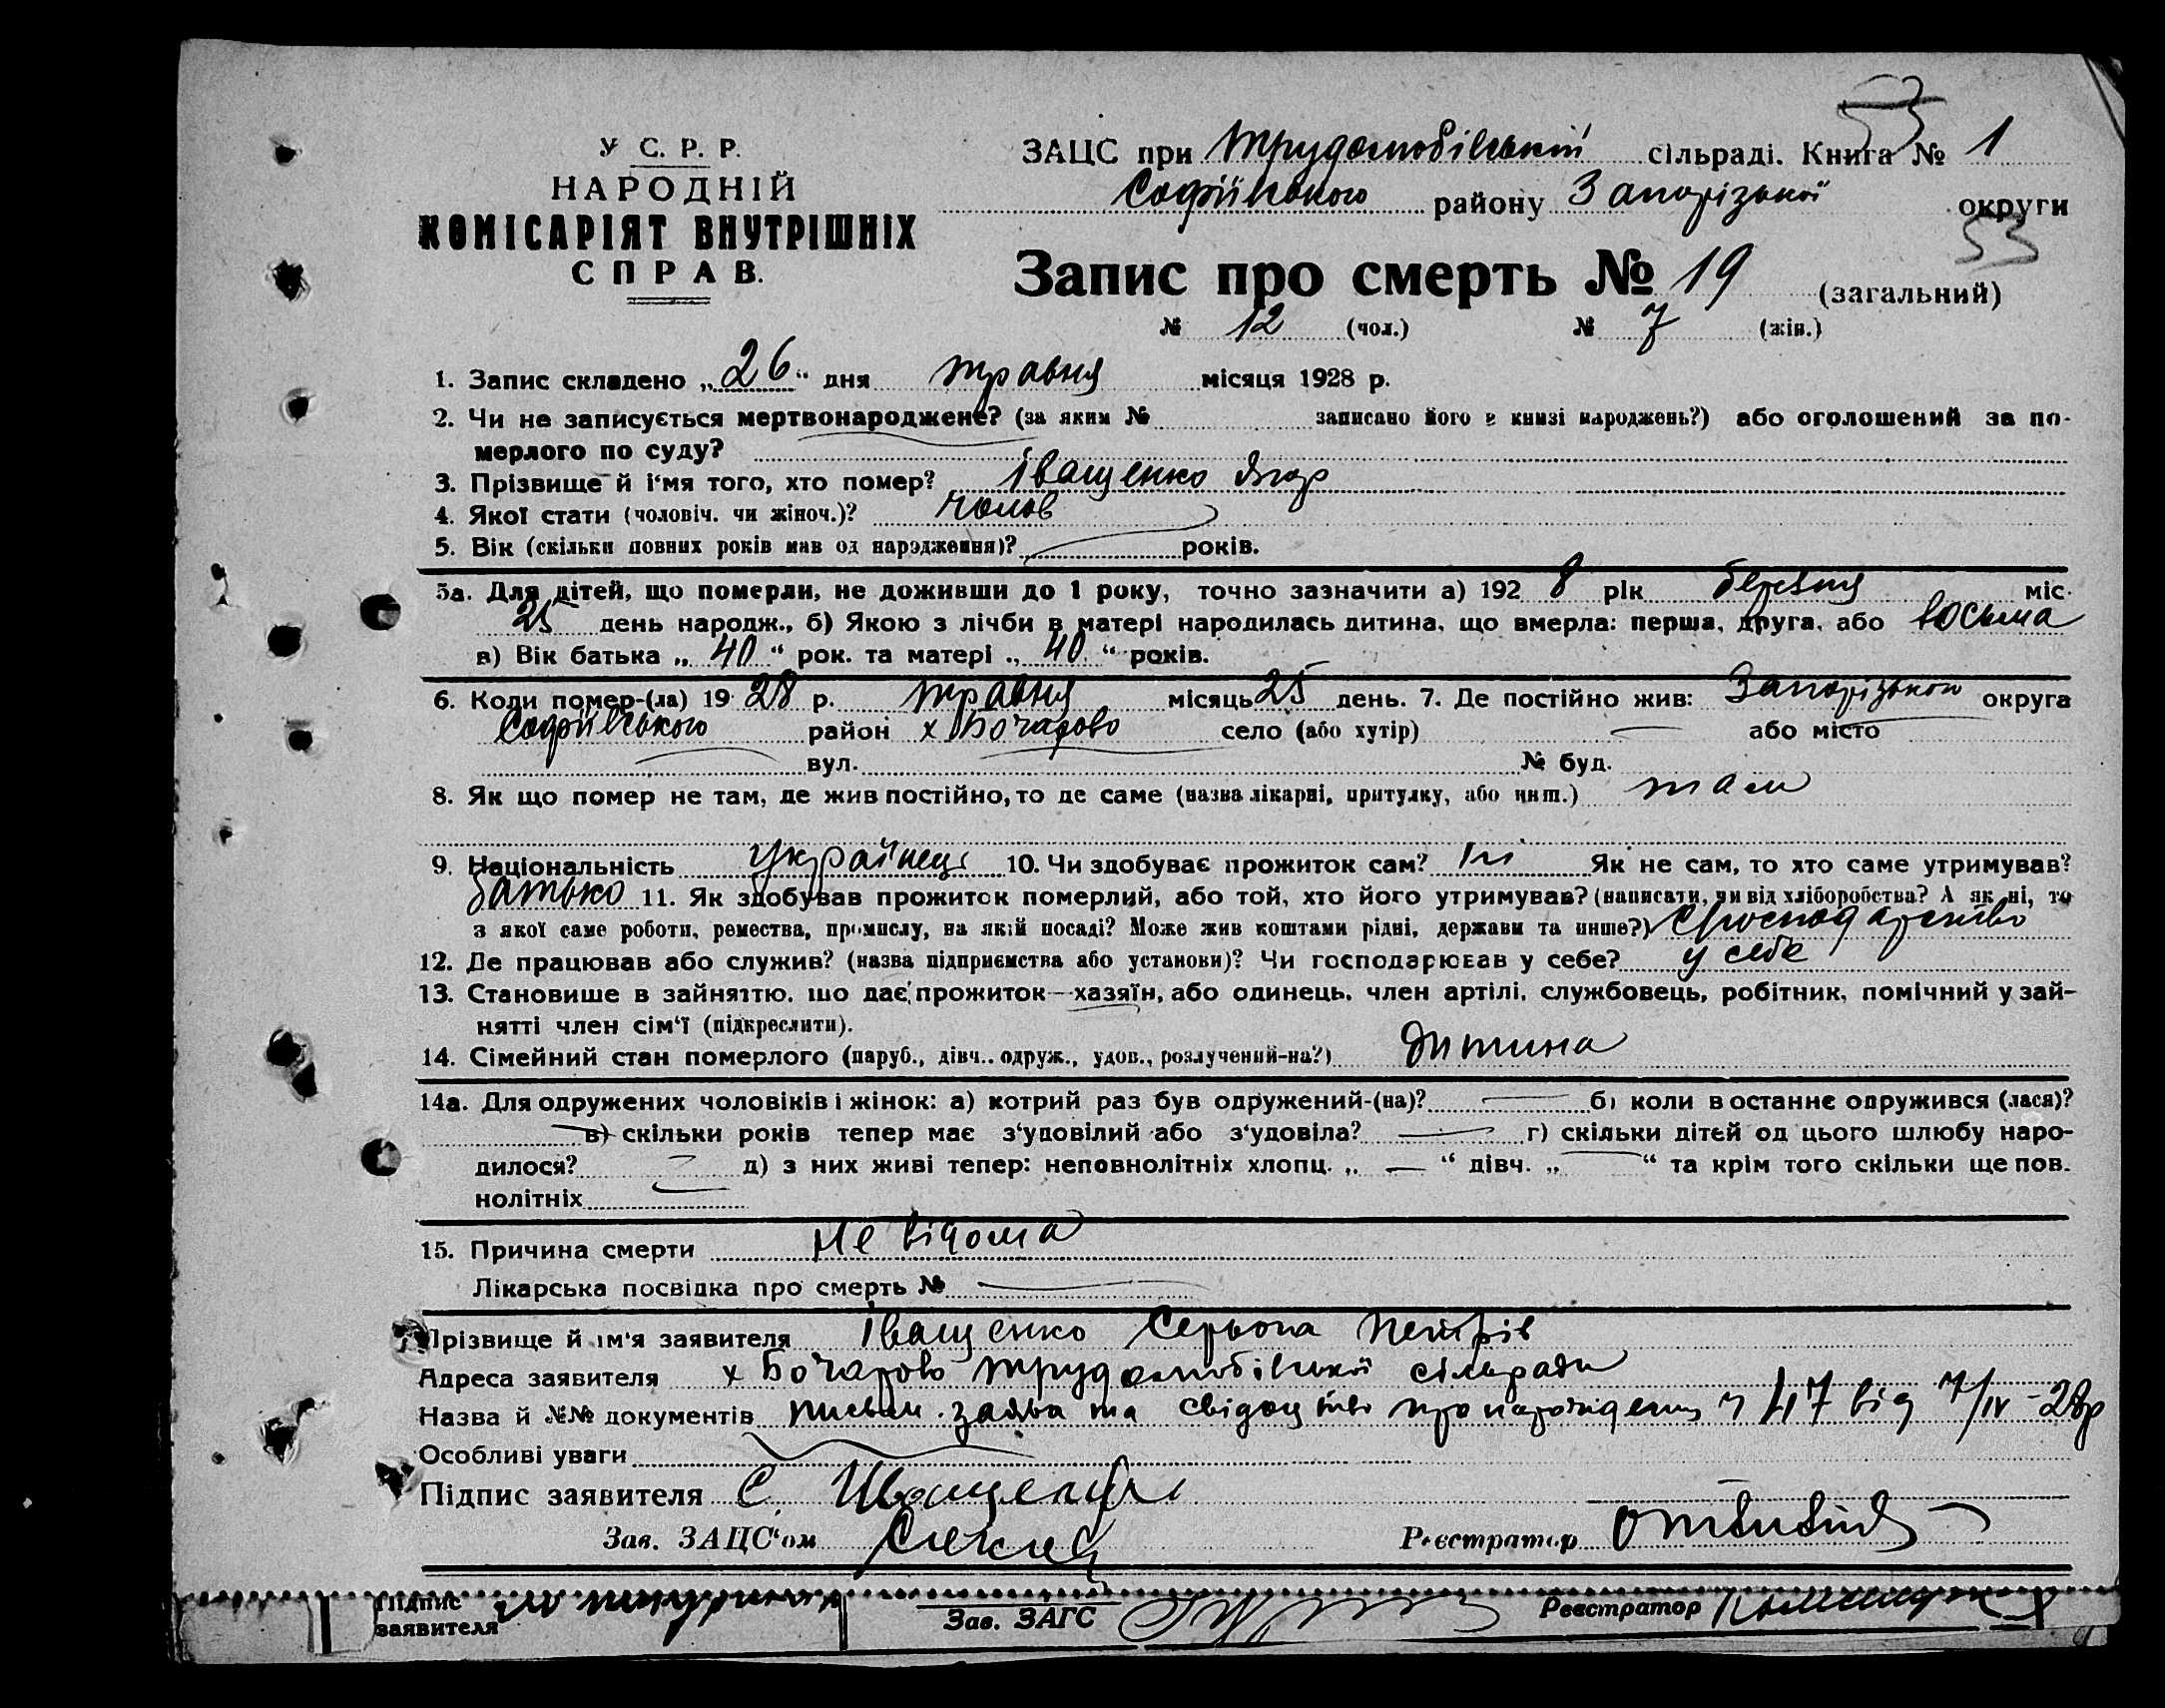 53
У С. Р. Р.
НАРОДНІЙ
КОМІСАРІЯТ ВНУТРІШНІХ
СПРАВ.
ЗАЦС при Трудолюбівській сільраді. Книга № 1
Софіївського району Запорізької округи
53
Запис про смерть № 19 (загальний)
№ 12 (чол.) № 7 (жін.)
1. Запис складено „26“ дня травня місяця 1928 р.
2. Чи не записується мертвонароджене? (за яким № записано його в книзі народжень?) або оголошений за по-
мерлого по суду?
3. Прізвище й і'мя того, хто помер? Іващенко Ягор
4. Якої стати (чоловіч. чи жіноч.)? чолов
5. Вік (скільки повних років мав од народження)? років.
5а. Для дітей, що померли, не доживши до 1 року, точно зазначити а) 1928 рік березня міс.
25 день народж., б) Якою з лічби в матері народилась дитина, що вмерла: перша, друга, або восьма
в) Вік батька „40“ рок. та матері „40“ років.
6. Коли помер-(ла) 1928 р. травня місяць 25 день. 7. Де постійно жив: Запорізькой округа
Софіївського район х Бочарово село (або хутір) або місто
вул. № буд.
8. Як що помер не там, де жив постійно, то де саме (назва лікарні, притулку, або инш.) там
9. Національність українець 10. Чи здобуває прожиток сам? ні Як не сам, то хто саме утримував?
батько 11. Як здобував прожиток померлий, або той, хто його утримував? (написати, чи від хліборобства? А як ні, то
з якої саме роботи, ремества, промислу, на якій посаді? Може жив коштами рідні, держави та инше?) с/господарство
12. Де працював або служив? (назва підприємства або установи)? Чи господарював у себе? у себе
13. Становище в зайняттю, що дає прожиток—хазяїн, або одинець, член артілі, службовець, робітник, помічний у зай-
нятті член сім'ї (підкреслити).
14. Сімейний стан померлого (паруб., дівч., одруж., удов., розлучений-на?) дитина
14а. Для одружених чоловіків і жінок: а) котрий раз був одружений-(на)? б) коли в останнє одружився (лася)?
в) скільки років тепер має з'удовілий або з'удовіла? г) скільки дітей од цього шлюбу наро-
дилося? д) з них живі тепер: неповнолітніх хлопц. „—“ дівч. „—“ та крім того скільки ще пов.
нолітніх
15. Причина смерти не відома
Лікарська посвідка про смерть №
Прізвище й ім'я заявителя Іващенко Серьога Петрів
Адреса заявителя х Бочарово Трудолюбівської сільради
Назва й №№ документів письм. заява та свідоцтво про народження ч 47 від 7/IV-28р
Особливі уваги
Підпис заявителя С. Иващенко
Зав. ЗАЦС'ом Реєстратор
Підпис
заявителя
Зав. ЗАГС Реєстратор